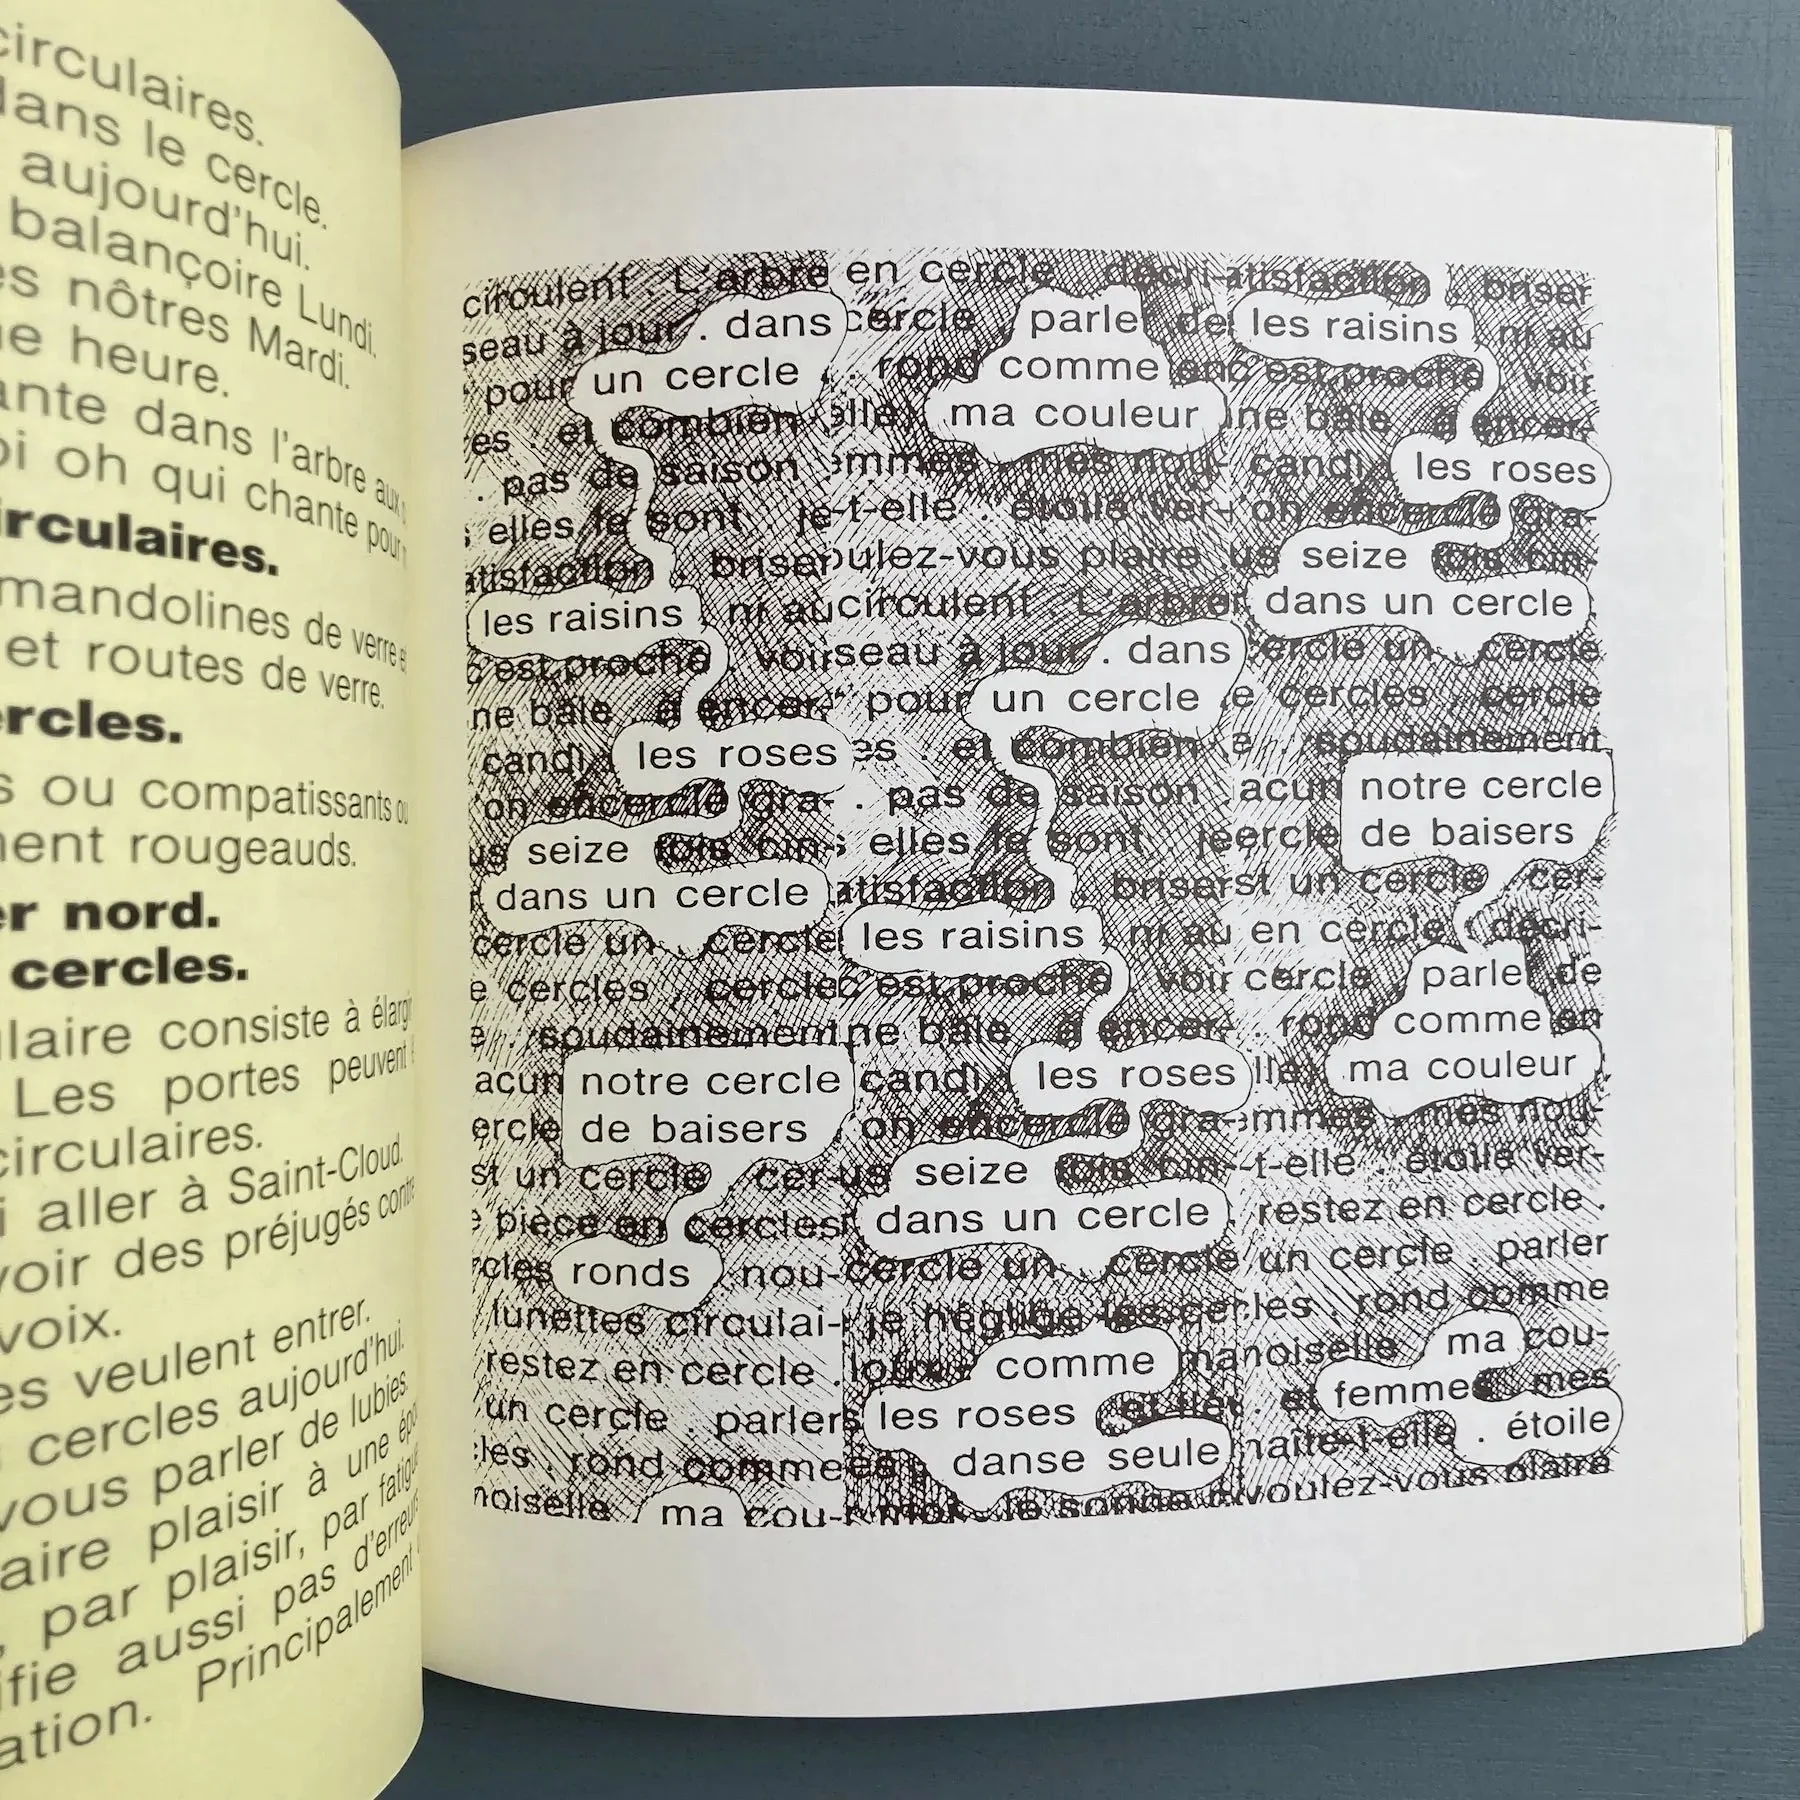 circulaires.
dans le cercle.
aujourd'hui.
balançoire Lundi.
es nôtres Mardi.
ne heure.
ante dans l'arbre aux
oi oh qui chante pour
irculaires.
mandolines de verre et
et routes de verre.
ercles.
s ou compatissants ou
ment rougeauds.
er nord.
cercles.
ulaire consiste à élargir
Les portes peuvent
circulaires.
i aller à Saint-Cloud.
voir des préjugés contre
voix.
es veulent entrer.
cercles aujourd'hui.
vous parler de lubies.
aire plaisir à une
, par plaisir, par
ifie aussi pas d'erreurs
ation. Principalement
circulent . L'arbre
seau à jour . dans
pour un cercle .
es . et combien
. pas de saison
s elles le sont . je
atisfaction . briser
les raisins , ni au
c'est proche . voir
ne bâle . à encer-
candi , les roses
on encercle gra-
us seize fois cin-
dans un cercle
cercle un . cercle
e cercles , cercle
e . soudainement
acun notre cercle
ercle de baisers ,
st un cercle , cer-
e pièce en cercles
rcles ronds , nou-
lunettes circulai-
restez en cercle .
un cercle . parler
cles . rond comme
noiselle , ma cou-
en cercle , décri-
cercle , parler de
. rond comme en
elle) ma couleur
emmes . mes nou-
-t-elle . étoile ver-
oulez-vous plaire
circulent . L'arbre
seau à jour . dans
" pour un cercle .
es . et combien
. pas de saison
s elles le sont . je
atisfaction . briser
les raisins , ni au
c'est proche . voir
ne bâle . à encer-
candi , les roses
on encercle gra-
us seize fois cin-
dans un cercle .
cercle un . cercle
je néglige les cer-
comme
les roses et
danse seule
moi. je songe
atisfaction . briser
les raisins , ni au
c'est proche voir
ne bâle à encer-
candi , les roses
on encercle gra-
us seize fois cin-
dans un cercle .
cercle un . cercle
e cercles , cercle
e . soudainement
acun notre cercle
ercle de baisers
st un cercle , cer-
en cercle , décri-
cercle , parler de
. rond comme en
lle) ma couleur
emmes . mes nou-
-t-elle . étoile ver-
restez en cercle .
un cercle . parler
cles . rond comme
manoiselle , ma cou-
. et femmes mes
haite-t-elle . étoile
voulez-vous plaire